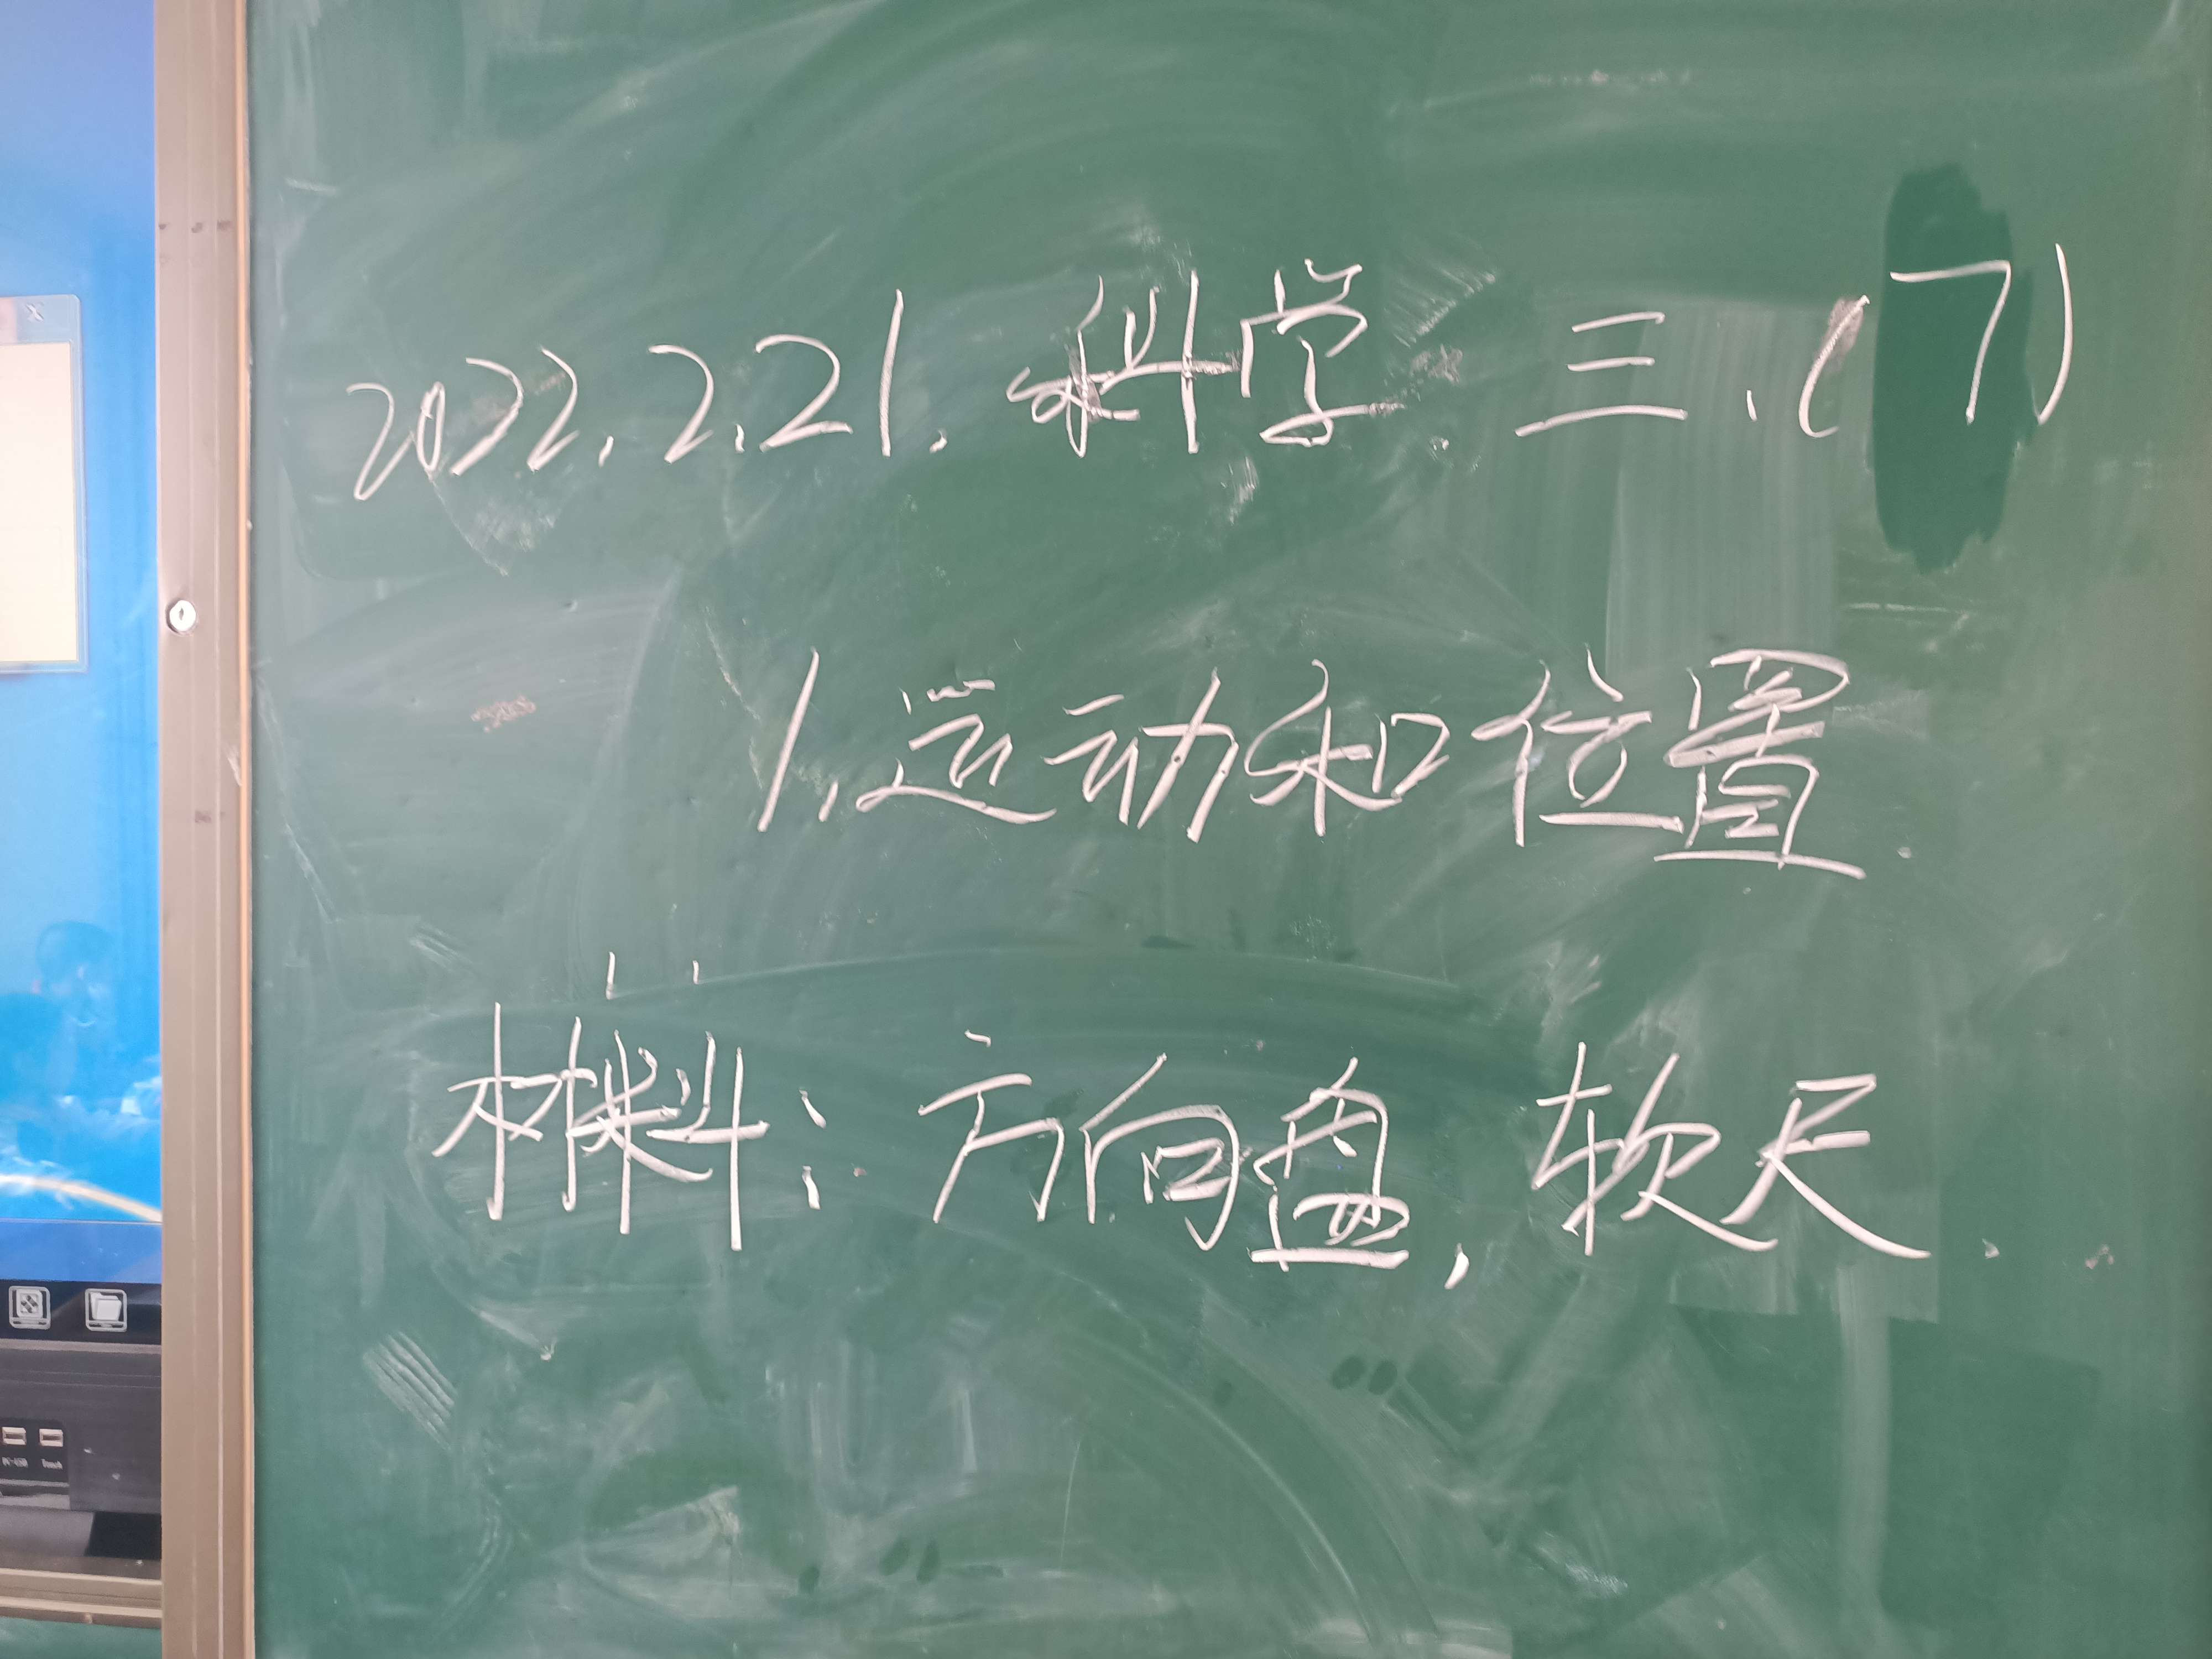 2022.2.21. 科学. 三.(7)
1.运动和位置.
材料:方向盘,软尺.
Touch